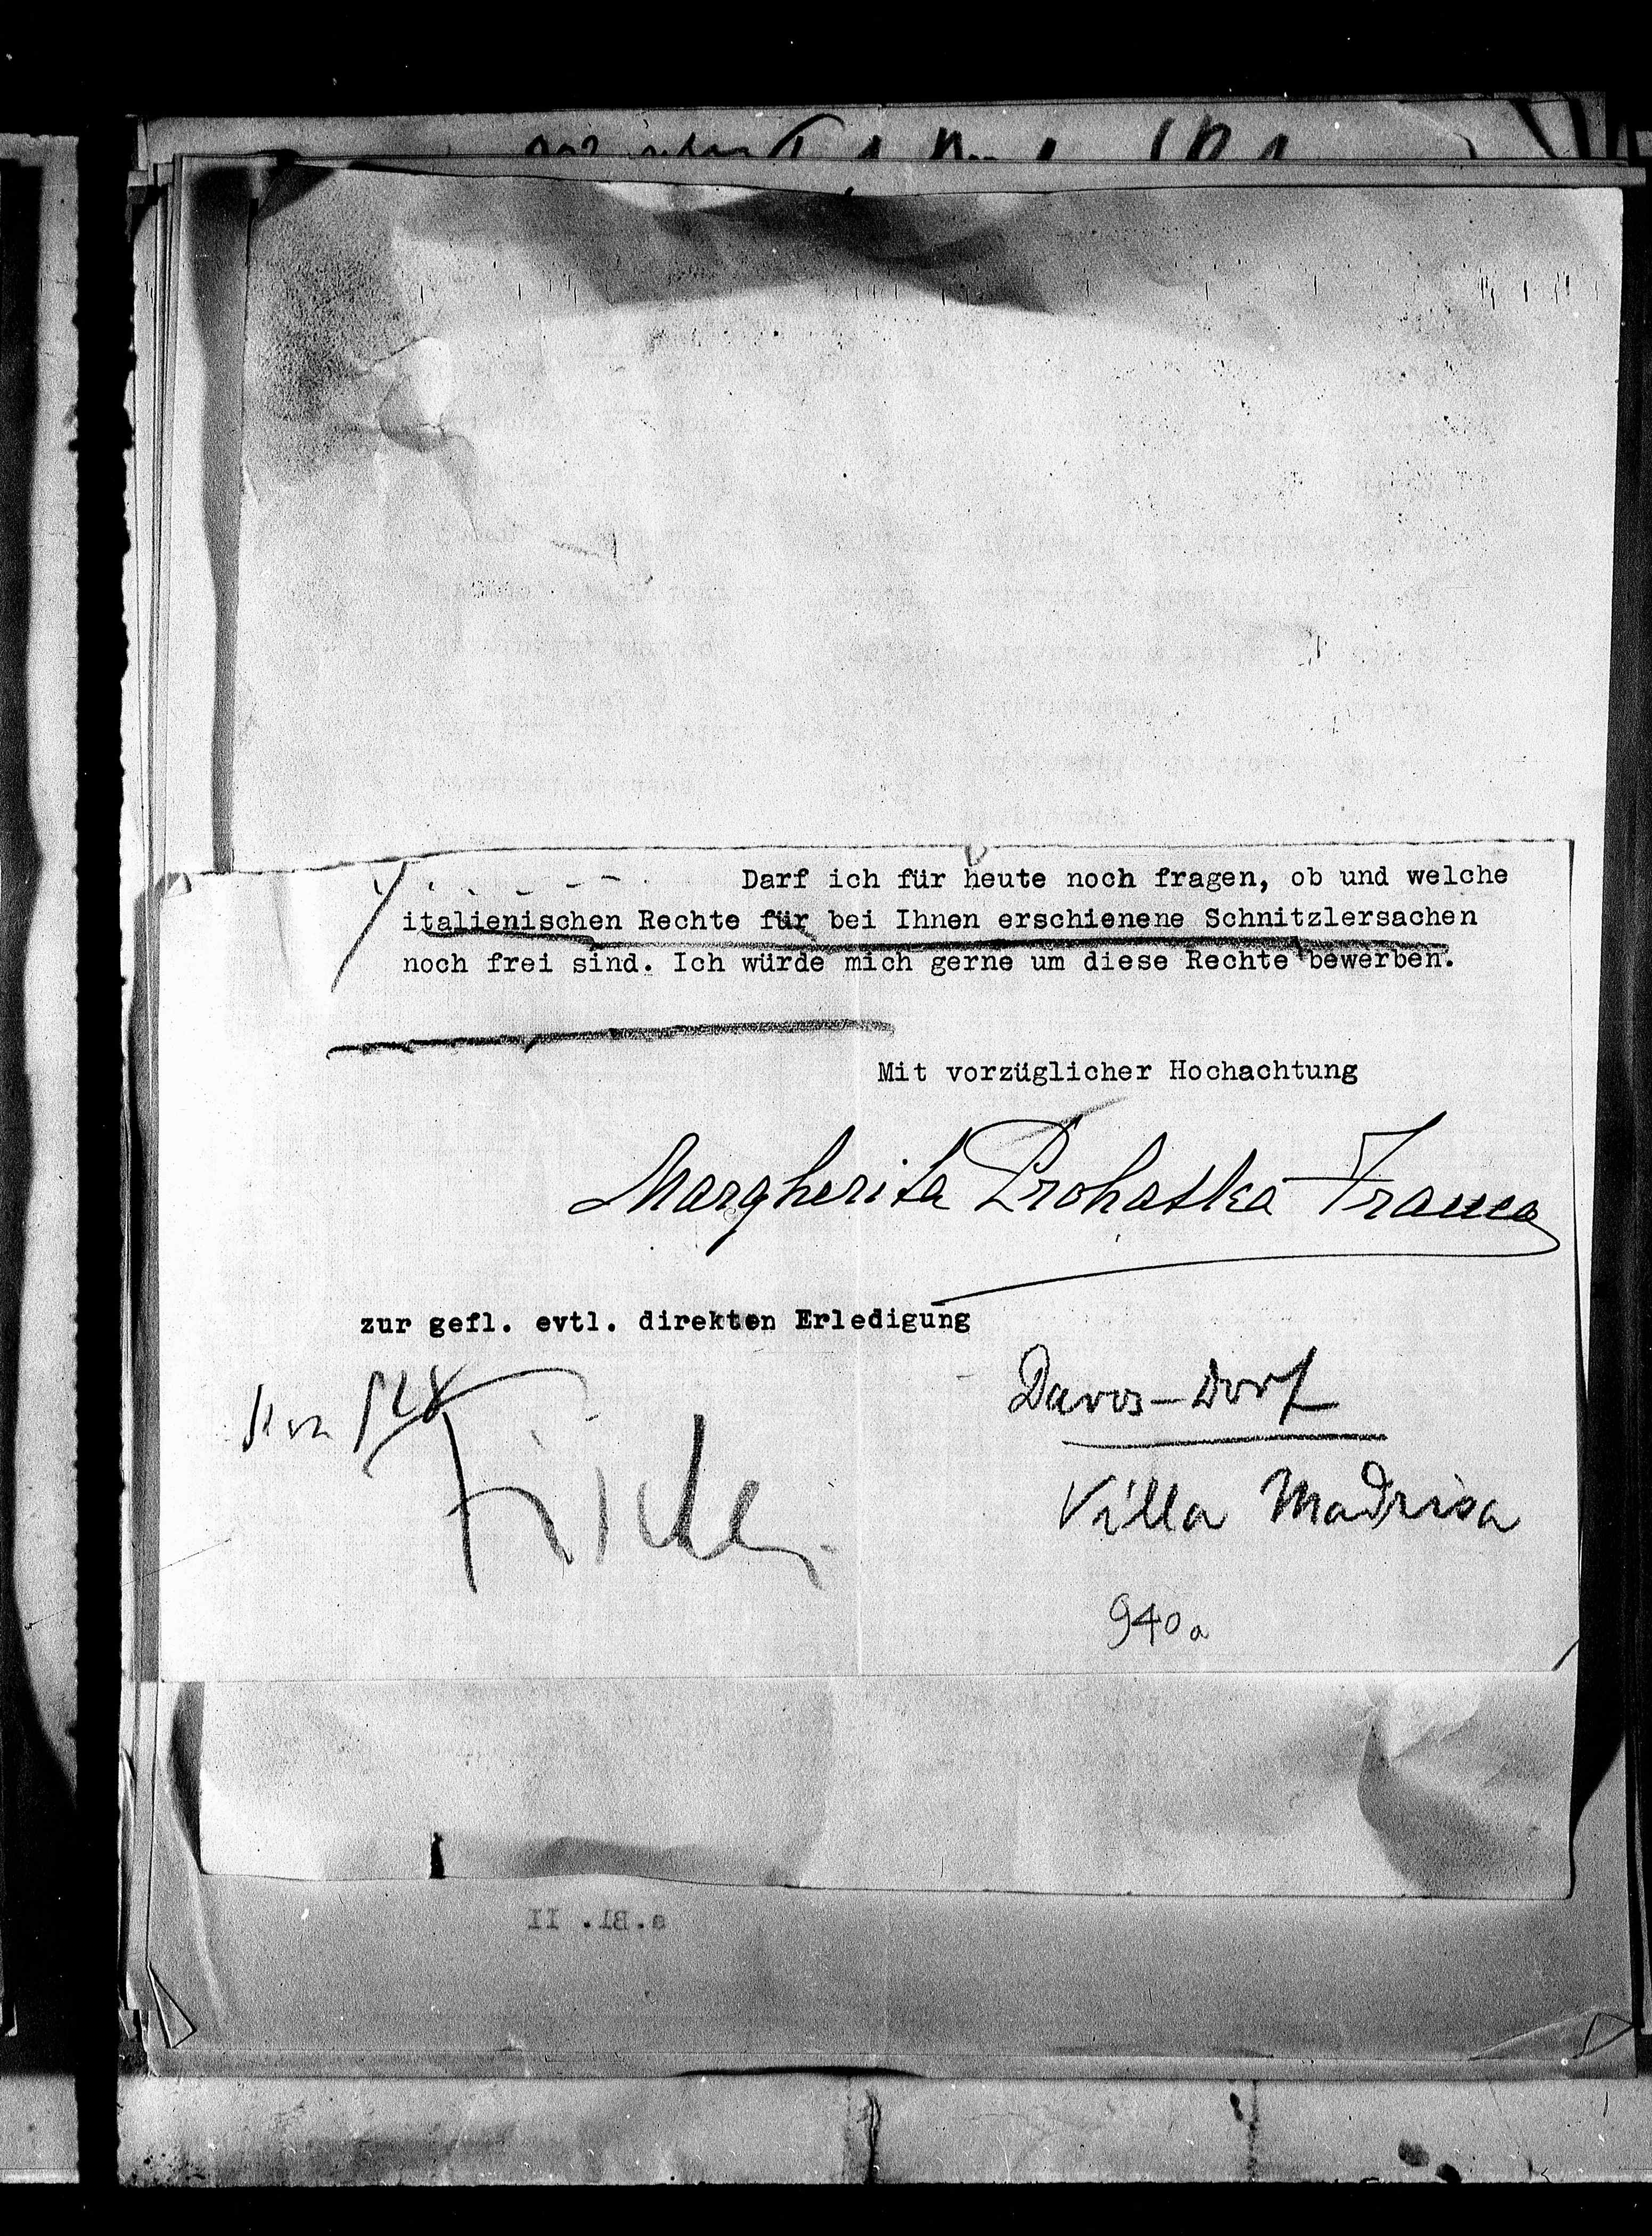 Darf ich für heute noch fragen, ob und welche
italienischen Rechte für bei Ihnen erschienene Schnitzlersachen
noch frei sind. Ich würde mich gerne um diese Rechte bewerben.
Mit vorzüglicher Hochachtung
Margherita Prohaska Franca
zur gefl. evtl. direkten Erledigung
Davos-Dorf
Villa Madrisa
940a
s.Bl. II